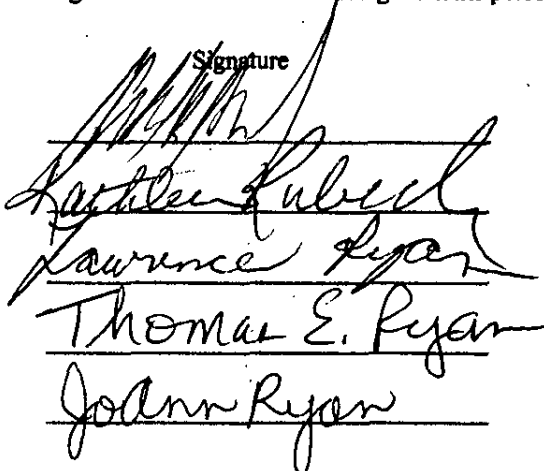 Signature
Kathleen Kubeck
Lawrence Ryan
Thomas E. Ryan
JoAnn Ryan